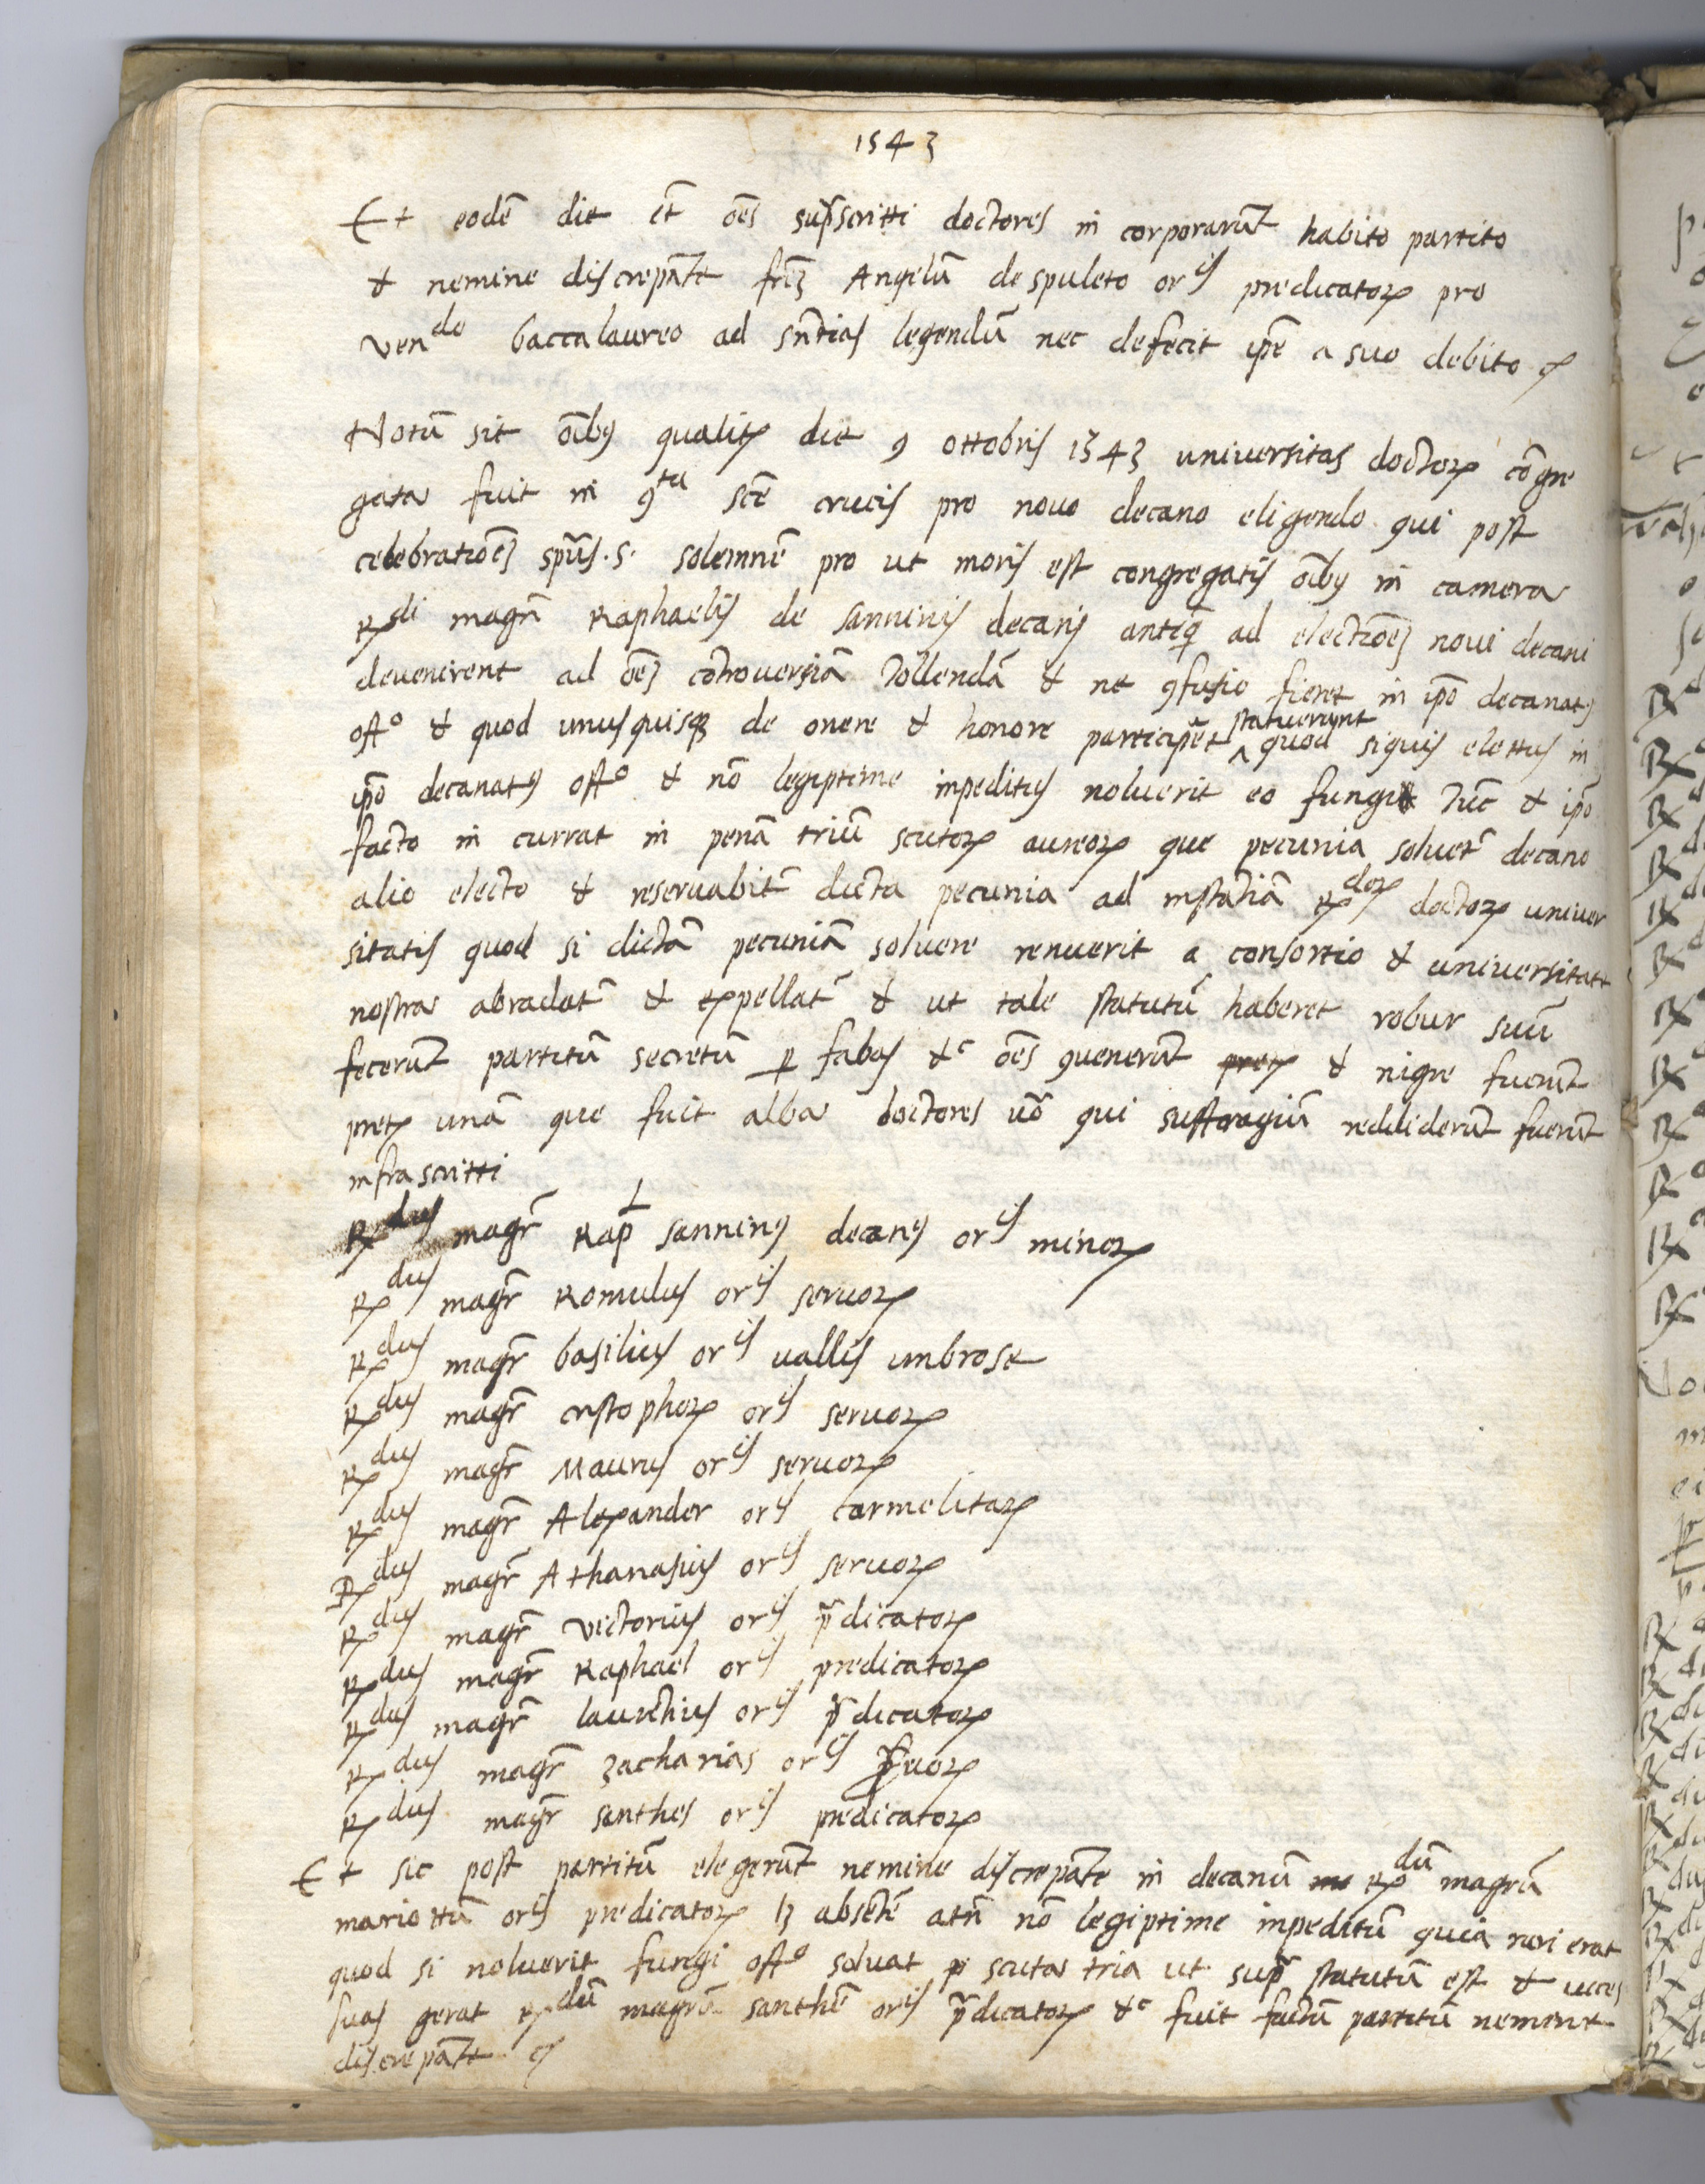 1543
Et eodē die et oēs sup̄scritti doctores in corporarūt habito partito
& nemine discrepāte frēȝ Angelū de spuleto orⁱˢ predicatoꝝ pro
venᵈᵒ baccalaureo ad sn̄tias legendū nec defecit ip̄e a suo debito
Notū sit oībꝰ qualitꝝ die 9 ottobris 1543 universitas doctoꝝ cōgre
gata fuit in ꝯᵗᵘ scē crucis pro novo decano eligendo qui post
celebratiōeȝ sp̄us .S. solemnē pro ut moris est congregatis oībꝰ in camera
Rᵈⁱ magr̄i Raphaelis de Sanninis decani antiq̄ ad electiōeȝ novi decani
devenirent ad oēȝ cōtroversiā tollendā & ne ꝯfusio fieret in ip̄o decanatꝰ
offᵒ & quod unusquisqꝫ de onere & honore participēt statuerunt quod siquis elettus in
ip̄o decanatꝰ offᵒ & nō legiptime inpeditus noluerit eo fungi tūc & ip̄o
facto in currat in penā triū scutoꝝ aureoꝝ que pecunia solvet̄ decano
alio electo & reservabit̄ dicta pecunia ad instātiā Rᵈᵒꝝ doctoꝝ univer
sitatis quod si dictā pecuniā solvere renuerit a consortio & universitate
nostra abradat̄ & expellat̄ & ut tale statutū haberet robur suū
fecerūt partitū secretū ꝑ fabas &c oēs ꝯvenerūt & nigre fuerūt
pretꝝ unā que fuit alba doctores vō qui suffragiū reddiderūt fuerūt
infrascritti
Rᵈᵘˢ magr̄ Rap̄ L Sanninꝰ decanꝰ orⁱˢ minoꝝ
Rᵈᵘˢ magr̄ Romulus orⁱˢ servoꝝ
Rᵈᵘˢ magr̄ basilius orⁱˢ vallis umbrose
Rᵈᵘˢ magr̄ cristophoꝝ orⁱˢ servoꝝ
Rᵈᵘˢ magr̄ Maurus orⁱˢ servoꝝ
Rᵈᵘˢ magr̄ Alexander orⁱˢ Carmelitaꝝ
Rᵈᵘˢ magr̄ Athanasius orⁱˢ servoꝝ
Rᵈᵘˢ magr̄ victorius orⁱˢ p̄dicatoꝝ
Rᵈᵘˢ magr̄ Raphael orⁱˢ predicatoꝝ
Rᵈᵘˢ magr̄ laurētius orⁱˢ p̄dicatoꝝ
Rᵈᵘˢ magr̄ zacharias orⁱˢ s̄voꝝ
Rᵈᵘˢ magr̄ santhes orⁱˢ predicatoꝝ
Et sic post partitū elegerūt nemine discrepāte in decanū Rᵈū magr̄ū
mariottū orⁱˢ predicatoꝝ lȝ absētē atn̄ nō legiptime inpeditū quia ruri erat
quod si noluerit fungi offᵒ solvat scuta tria ut sup̄ statutū est & vices
suas gerat Rᵈū magr̄ū santhē orⁱˢ p̄dicatoꝝ &c fuit factū partitū nemine
discrepāte